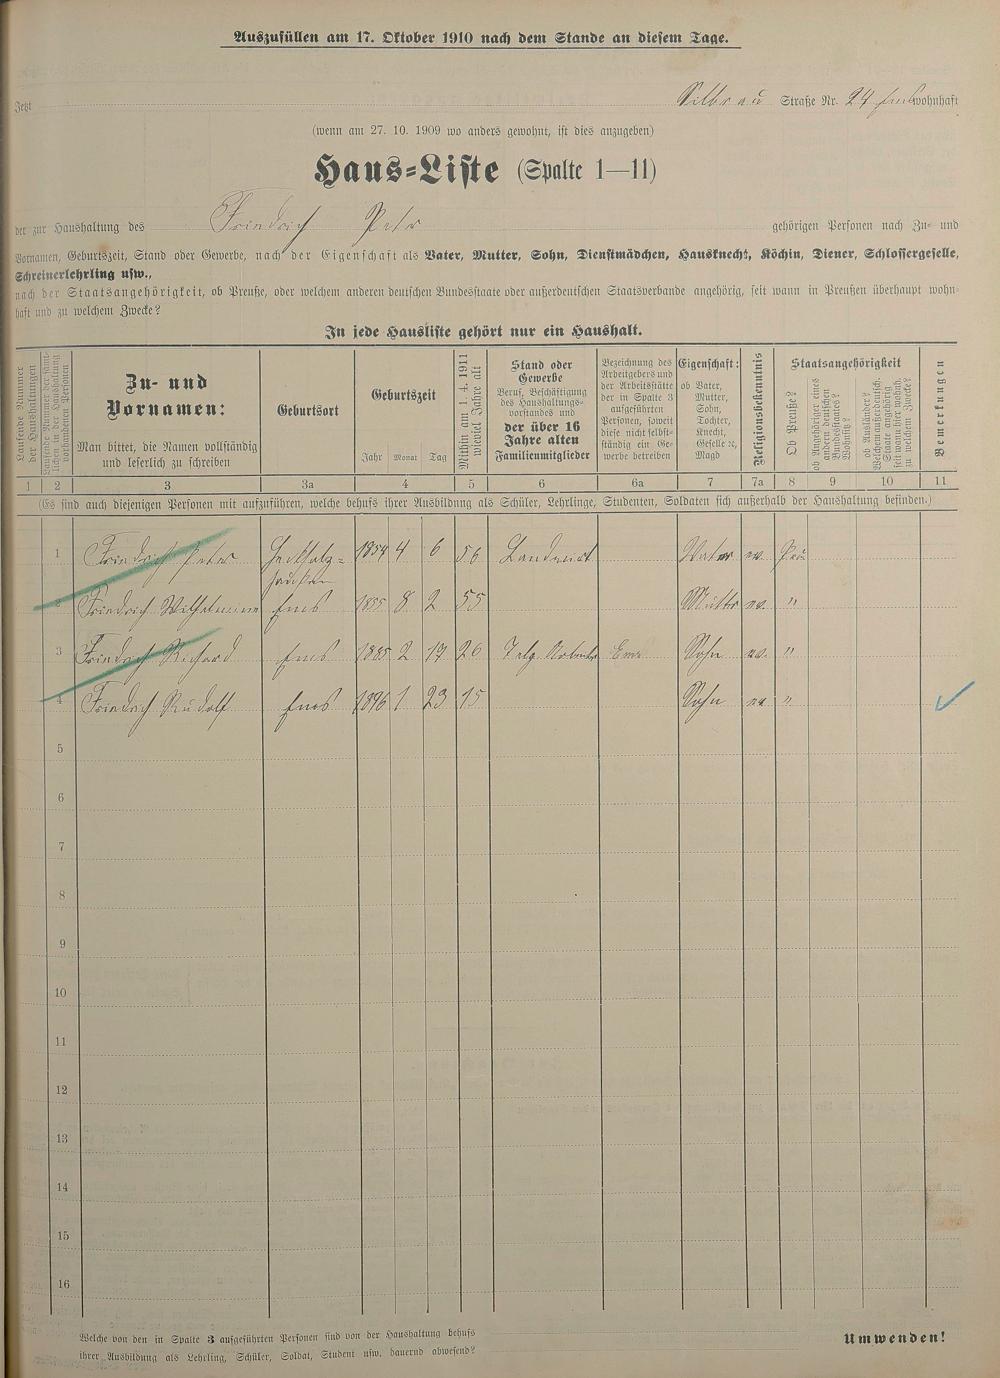 Auszufüllen am 17. Oktober 1910 nach dem Stande an diesem Tage.
Jetzt Silbrau Straße Nr. 24 Ems wohnhaft
(wenn am 27. 10. 1909 wo anders gewohnt, ist dies anzugeben)
Haus=Liste (Spalte 1—11)
der zur Haushaltung des Friedrich Peter gehörigen Personen nach Zu= und
Vornamen, Geburtszeit, Stand oder Gewerbe, nach der Eigenschaft als Vater, Mutter, Sohn, Dienstmädchen, Hausknecht, Köchin, Diener, Schlossergeselle,
Schreinerlehrling usw.,
nach der Staatsangehörigkeit, ob Preuße, oder welchem anderen deutschen Bundesstaate oder außerdeutschen Staatsverbande angehörig, seit wann in Preußen überhaupt wohn=
haft und zu welchem Zwecke?
In jede Hausliste gehört nur ein Haushalt.
Laufende Nummer
der Haushaltungen
Laufende Nummer der sämt=
lichen in der Haushaltung
vorhandenen Personen
Zu= und
Vornamen:
Man bittet, die Namen vollständig
und leserlich zu schreiben
Geburtsort
Geburtszeit
Jahr Monat Tag
Mithin am 1. 4. 1911
wieviel Jahre alt
Stand oder
Gewerbe
Beruf, Beschäftigung
des Haushaltungs=
vorstandes und
der über 16
Jahre alten
Familienmitglieder
Bezeichnung des
Arbeitgebers und
der Arbeitsstätte
der in Spalte 3
aufgeführten
Personen, soweit
diese nicht selbst=
ständig ein Ge=
werbe betreiben
Eigenschaft:
ob Vater,
Mutter,
Sohn,
Tochter,
Knecht,
Geselle ꝛc,
Magd
Religionsbekenntnis
Staatsangehörigkeit
Ob Preuße?
ob Angehöriger eines
andern deutschen
Bundesstaates?
Wohnsitz?
ob Ausländer?
Welchem außerdeutsch.
Staate angehörig
seit wann hier wohnh.
zu welchem Zwecke?
Bemerkungen
1 2 3 3a 4 5 6 6a 7 7a 8 9 10 11
(Es sind auch diejenigen Personen mit aufzuführen, welche behufs ihrer Ausbildung als Schüler, Lehrlinge, Studenten, Soldaten sich außerhalb der Haushaltung befinden.)
1 Friedrich Peter Heckholz= 1854 4 6 56 Vater ev. Preu
hausen
2 Friedrich Wilhelmine Ems 1855 8 2 55 Mutter ev. "
3 Friedrich Richard Ems 1885 2 17 26 Ems Sohn ev. "
4 Friedrich Rudolf Ems 1896 1 23 15 Sohn ev "
5
6
7
8
9
10
11
12
13
14
15
16
Welche von den in Spalte 3 aufgeführten Personen sind von der Haushaltung behufs
ihrer Ausbildung als Lehrling, Schüler, Soldat, Student usw. dauernd abwesend?
Umwenden!